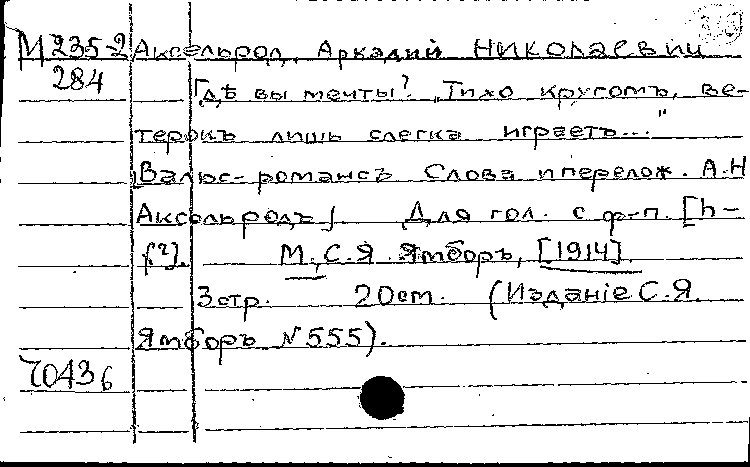 М 235-2 Аксельрод, Аркадий Николаевич
284
Гдѣ вы мечты? „Тихо кругомъ, ве-
терокъ лишь слегка играетъ..."
[Вальс-романсъ Слова и перелож. А.Н
Аксельродъ] Для гол. с ф-п. [h-
М., С.Я. Ямборъ, [1914].
3 стр. 20 см. (Изданіе С.Я.
Ямборъ № 555).
70436